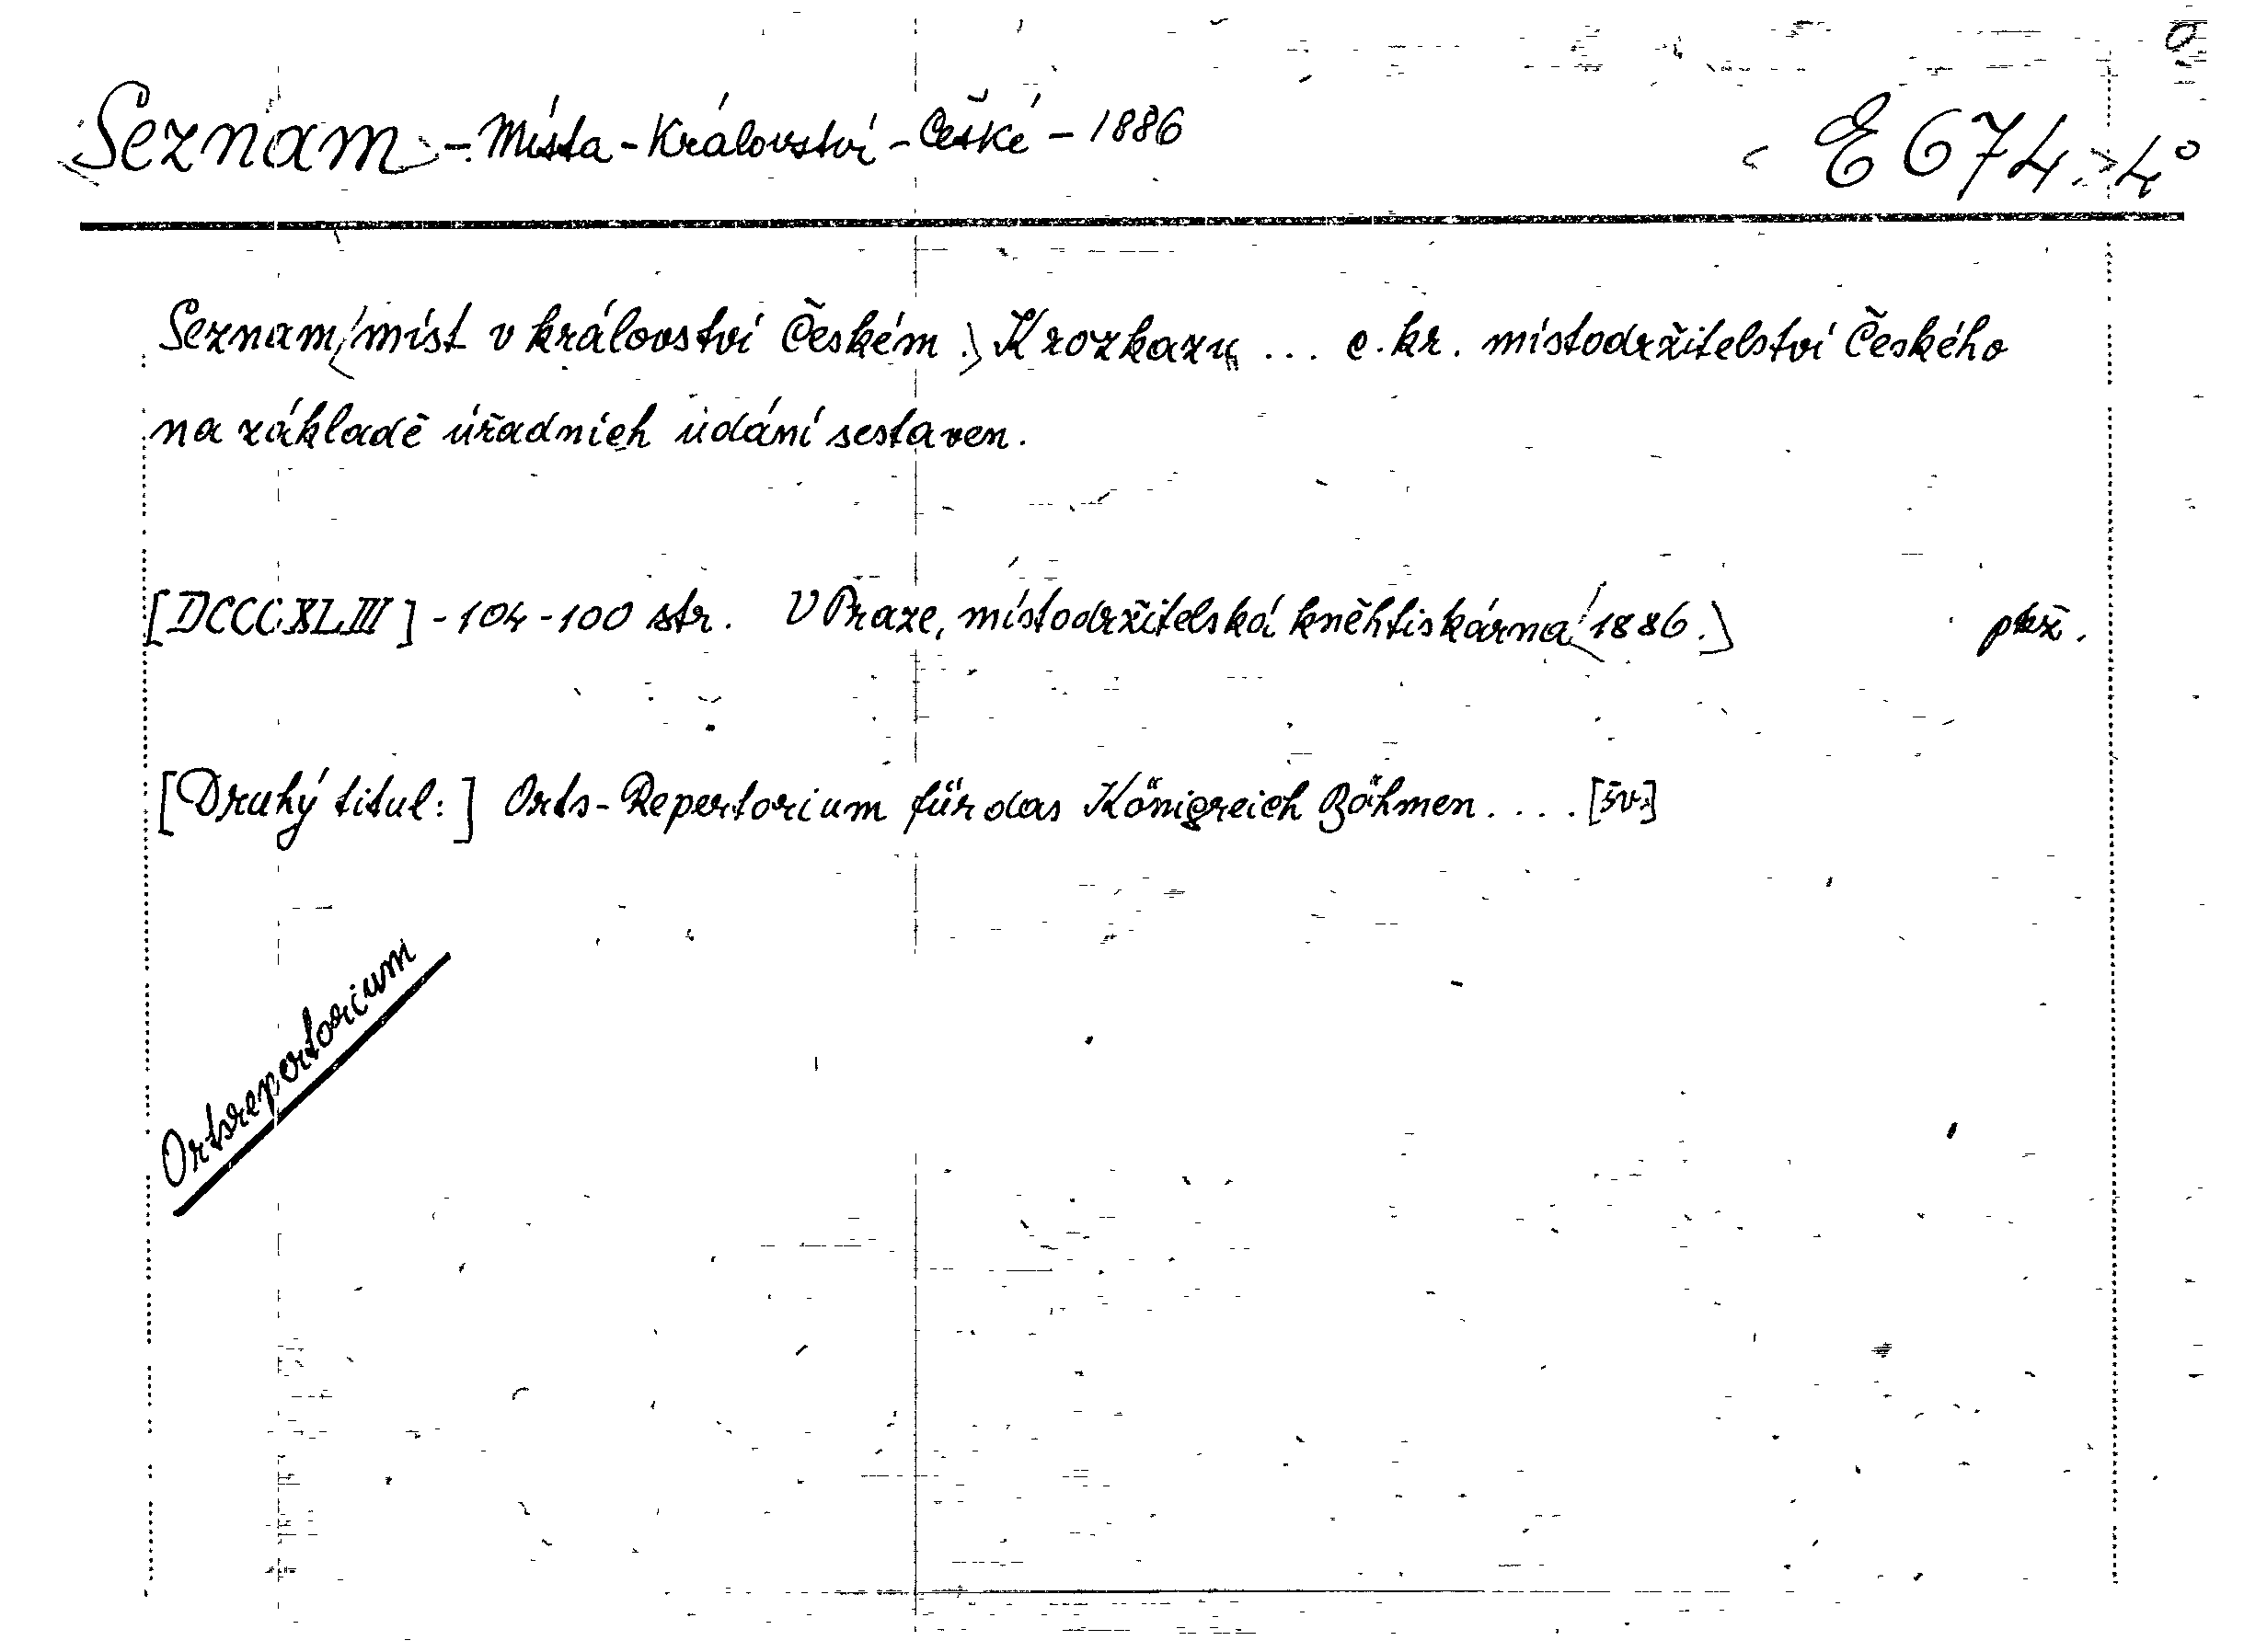 Seznam - Místa - Království - České - 1886 E 674 4°
Seznam míst v království Českém. K rozkazu ... c. kr. místodržitelství Českého
na základě úředních udání sestaven.
[DCCCXLIII] - 104 - 100 str. V Praze, místodržitelská kněhtiskárna 1886.
[Druhý titul:] Orts-Repertorium für das Königreich Böhmen .... [šv.]
Ortsrepertorium